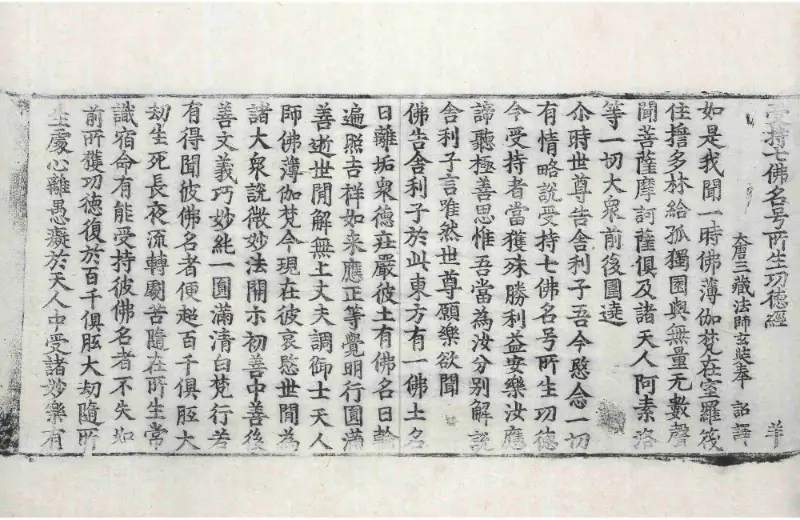 受持七佛名号所生功德經
大唐三藏法師玄奘奉 詔譯 羊
如是我聞一時佛薄伽梵在室羅筏
住擔多林給孤獨園與無量无數聲
聞菩薩摩訶薩俱及諸天人阿素洛
等一切大衆前後圍遶
尒時世尊告舍利子吾今愍念一切
有情略說受持七佛名号所生功德
今受持者當獲殊勝利益安樂汝應
諦聽極善思惟吾當為汝分別解說
舍利子言唯然世尊願樂欲聞
佛告舍利子於此東方有一佛土名
日離垢衆德莊嚴彼土有佛名日輪
遍照吉祥如来應正等覺明行圓滿
善逝世間解無上丈夫調御士天人
師佛薄伽梵今現在彼哀愍世間為
諸大衆說微妙法開示初善中善後
善文義巧妙純一圓滿清白梵行若
有得聞彼佛名者便超百千俱胝大
劫生死長夜流轉劇苦隨在所生常
識宿命有能受持彼佛名者不失如
前所獲功德復於百千俱胝大劫隨所
生處心離愚癡於天人中受諸妙樂有